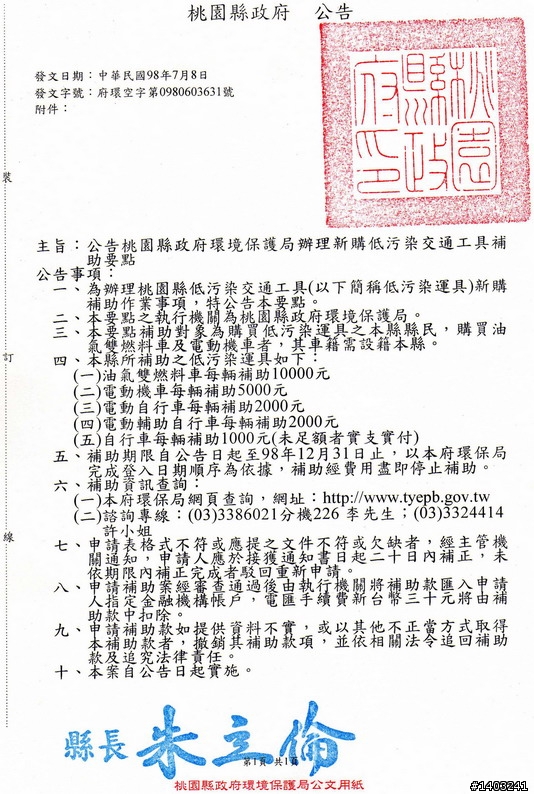 桃園縣政府　公告
桃園縣政府印
發文日期：中華民國98年7月8日
發文字號：府環空字第0980603631號
附件：
裝
訂
線
主旨：公告桃園縣政府環境保護局辦理新購低污染交通工具補
助要點
公告事項：
一、為辦理桃園縣低污染交通工具(以下簡稱低污染運具)新購
補助作業事項，特公告本要點。
二、本要點之執行機關為桃園縣政府環境保護局。
三、本要點補助對象為購買低污染運具之本縣縣民，購買油
氣雙燃料車及電動機車者，其車籍需設籍本縣。
四、本縣所補助之低污染運具如下：
(一)油氣雙燃料車每輛補助10000元
(二)電動機車每輛補助5000元
(三)電動自行車每輛補助2000元
(四)電動輔助自行車每輛補助2000元
(五)自行車每輛補助1000元(未足額者實支實付)
五、補助期限自公告日起至98年12月31日止，以本府環保局
完成登入日期順序為依據，補助經費用盡即停止補助。
六、補助資訊查詢：
(一)本府環保局網頁查詢，網址：http://www.tyepb.gov.tw
(二)諮詢專線：(03)3386021分機226 李先生；(03)3324414
許小姐
七、申請表格式不符或應提之文件不符或欠缺者，經主管機
關通知，申請人應於接獲通知書日起二十日內補正，未
依期限內補正完成者駁回重新申請。
八、申請補助案經審查通過後由執行機關將補助款匯入申請
人指定金融機構帳戶，電匯手續費新台幣三十元將由補
助款中扣除。
九、申請補助款如提供資料不實，或以其他不正當方式取得
本補助款者，撤銷其補助款項，並依相關法令追回補助
款及追究法律責任。
十、本案自公告日起實施。
縣長 朱立倫
第1頁 共1頁
桃園縣政府環境保護局公文用紙
#1403241